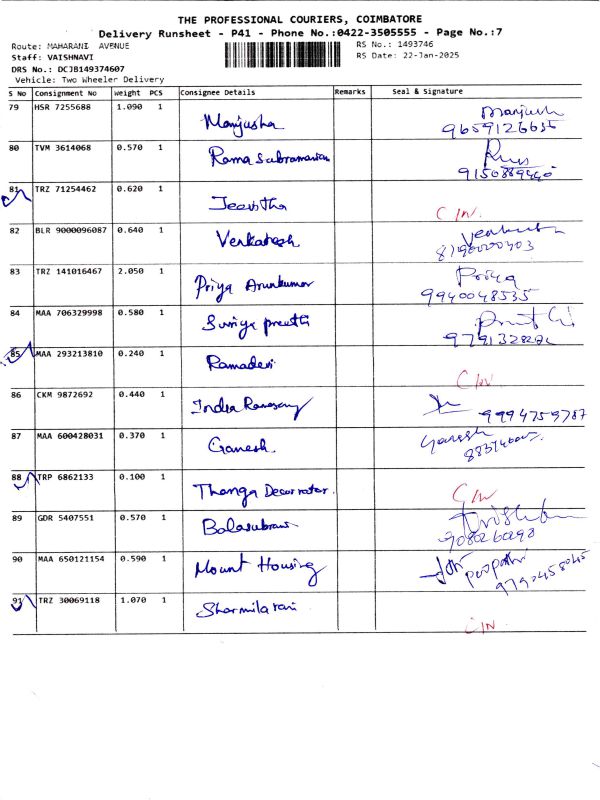 THE PROFESSIONAL COURIERS, COIMBATORE
Delivery Runsheet - P41 - Phone No.:0422-3505555 - Page No.:7
Route: MAHARANI AVENUE
RS No.: 1493746
Staff: VAISHNAVI
RS Date: 22-Jan-2025
DRS No.: DCJB149374607
Vehicle: Two Wheeler Delivery
S No Consignment No Weight PCS Consignee Details Remarks Seal & Signature
79 HSR 7255688 1.090 1 Manjusha Manjush
9659126635
80 TVM 3614068 0.570 1 Rama Subramanian
9150889440
81 TRZ 71254462 0.620 1 Jeevitha C/N.
82 BLR 9000096087 0.640 1 Venkatesh
83 TRZ 141016467 2.050 1 Priya Arunkumar Priya
9940048535
84 MAA 706329998 0.580 1 Suriya preethi
85 MAA 293213810 0.240 1 Ramadevi C/N
86 CKM 9872692 0.440 1 Indra Ramasamy 9994759787
87 MAA 600428031 0.370 1 Ganesh. Ganesh
88 TRP 6862133 0.100 1 Thanga Decorrator. C/N
89 GDR 5407551 0.570 1 Balasubram
9080260298
90 MAA 650121154 0.590 1 Mount Housing
9790458045
91 TRZ 30069118 1.070 1 Sharmila rani C/N